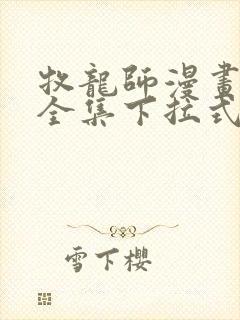 牧龍師漫畫
全集下拉式
雪下櫻